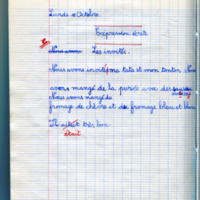 Lundi 4 Octobre
Expression écrite
Les invités.
Nous avons invitéons tata et mon tonton. Nous
avons mangé de la purée avec des
Nous avons mangé du
fromage de chèvre et du fromage bleu et blanc
Il était très bon
était